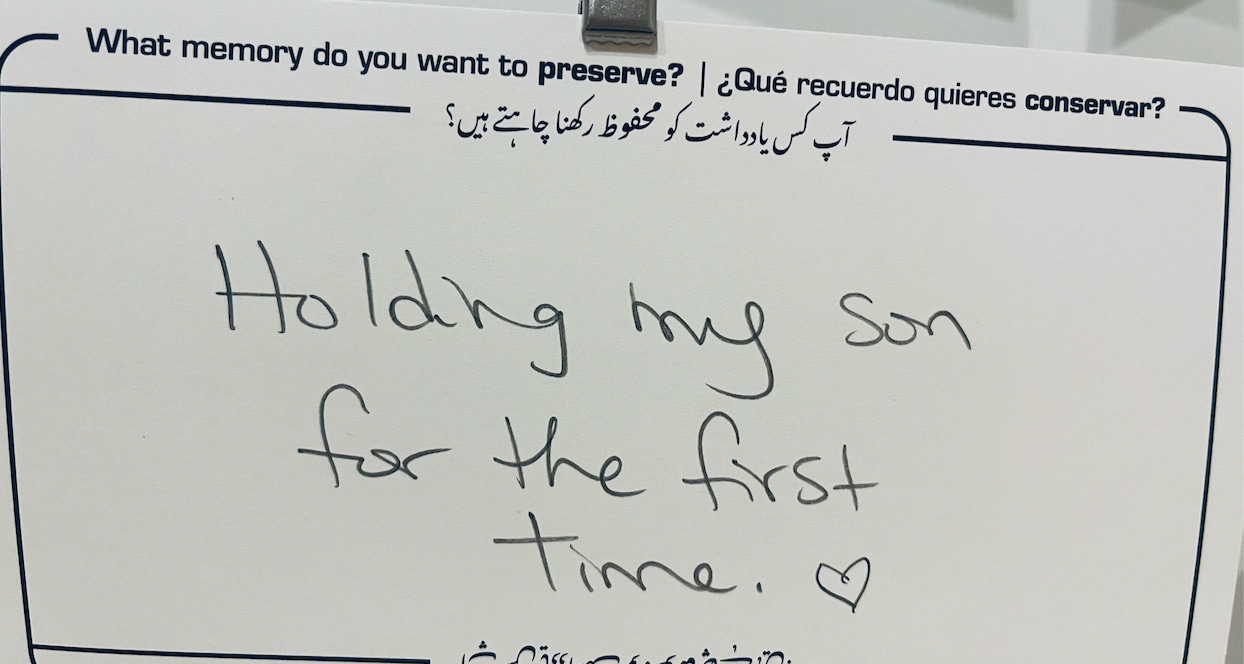 What memory do you want to preserve? | ¿Qué recuerdo quieres conservar?
آپ کس یادداشت کو محفوظ رکھنا چاہتے ہیں؟
Holding my son
for the first
time. ♡